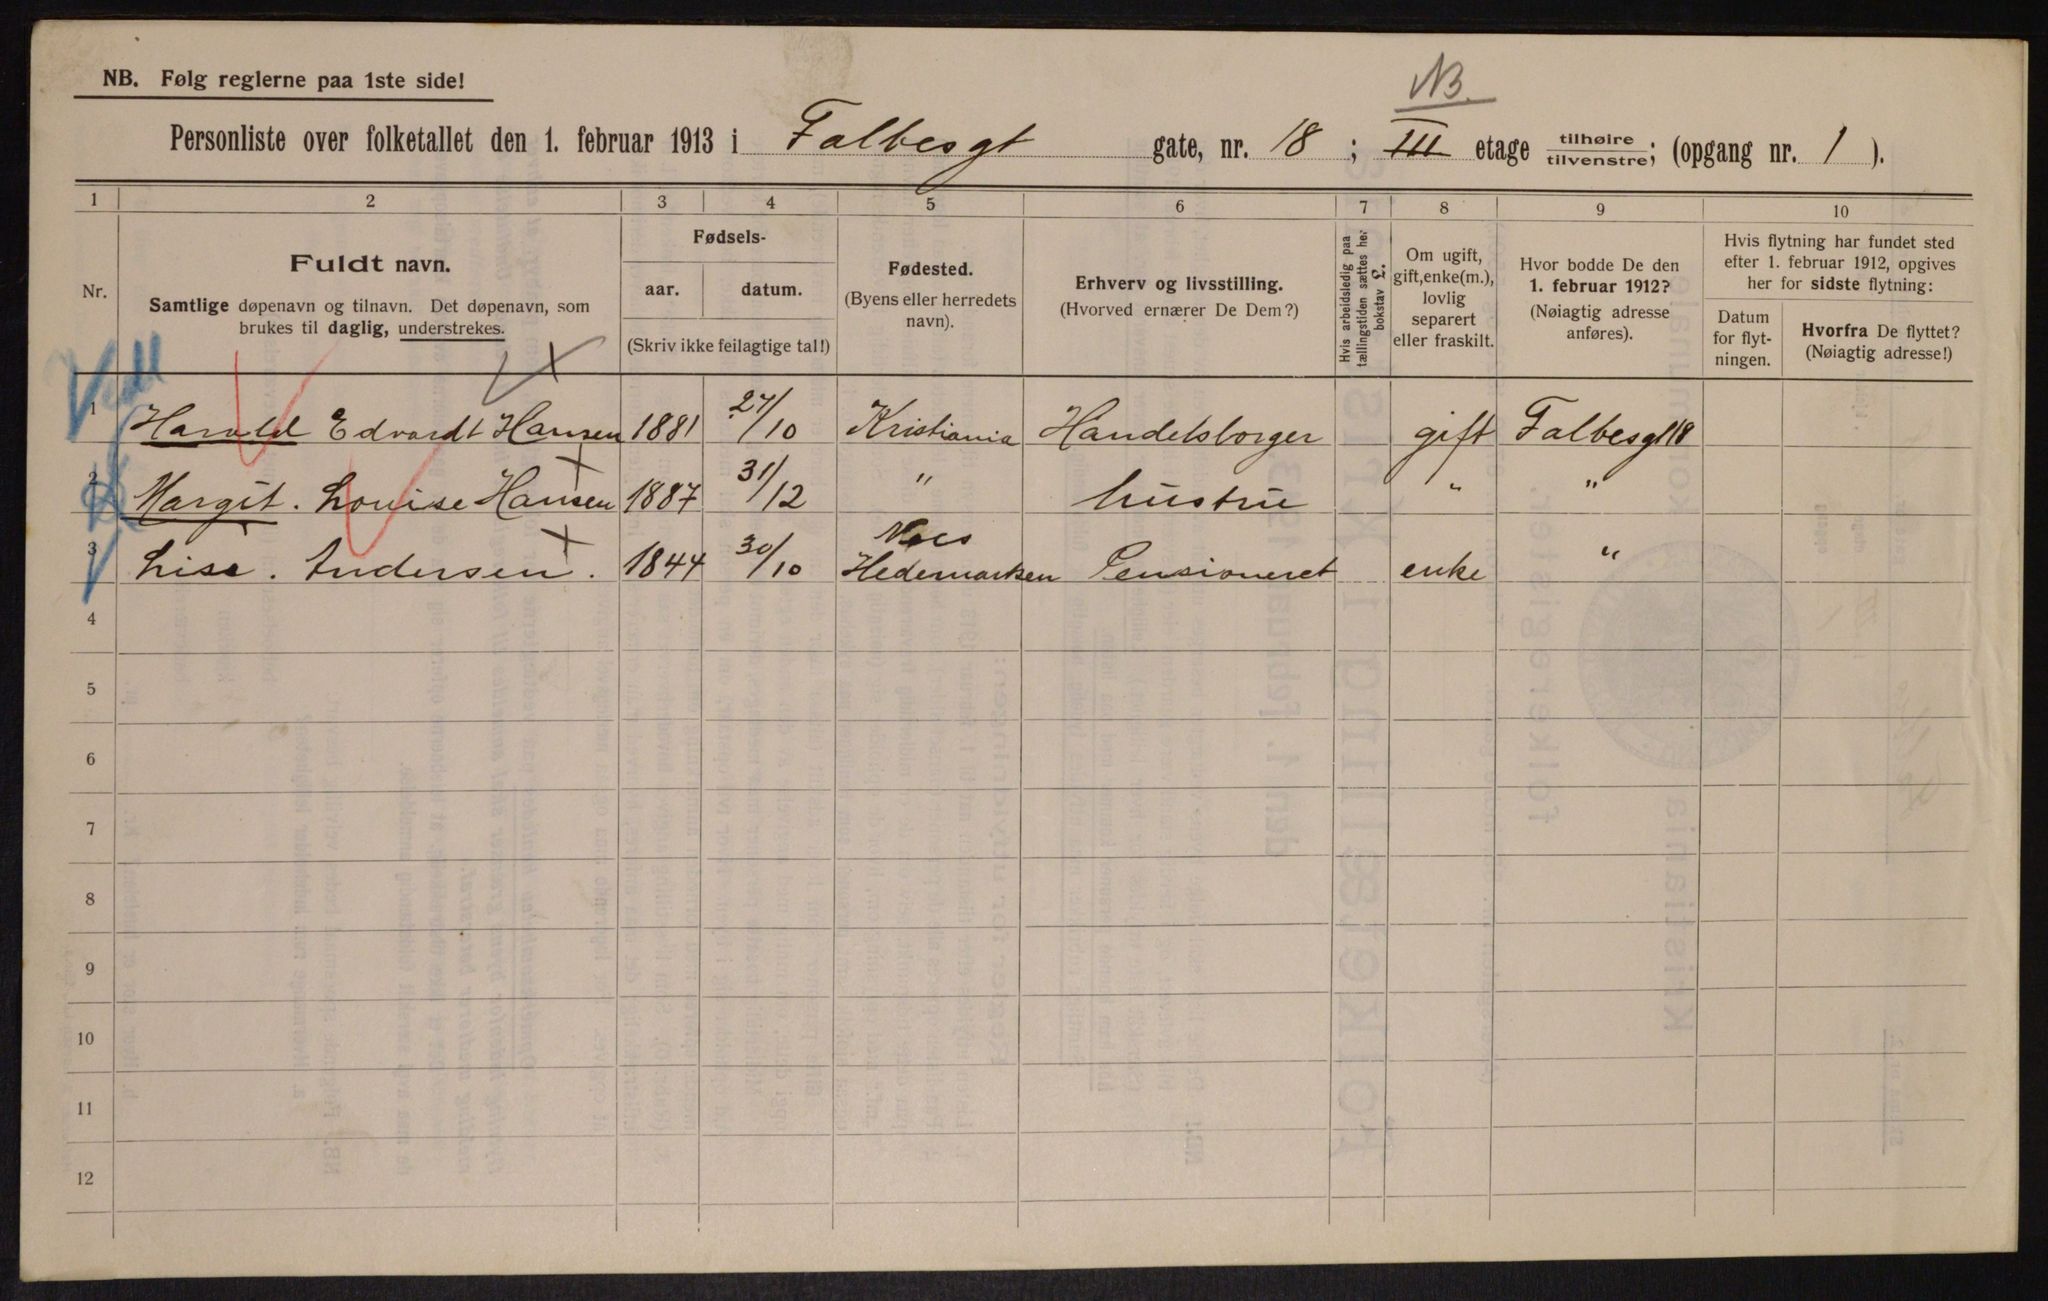 NB. Følg reglerne paa 1ste side!
NB.
Personliste over folketallet den 1. februar 1913 i Falbesgt gate, nr. 18 ; III etage tilhøire tilvenstre; (opgang nr. 1 ).
1 2 3 4 5 6 7 8 9 10
Nr.
Fuldt navn.
Samtlige døpenavn og tilnavn. Det døpenavn, som
brukes til daglig, understrekes.
Fødsels-
aar. datum.
(Skriv ikke feilagtige tal!)
Fødested.
(Byens eller herredets
navn).
Erhverv og livsstilling.
(Hvorved ernærer De Dem?)
Hvis arbeidsledig paa
tællingstiden sættes her
bokstav L.
Om ugift,
gift, enke(m.),
lovlig
separert
eller fraskilt.
Hvor bodde De den
1. februar 1912?
(Nøiagtig adresse
anføres).
Hvis flytning har fundet sted
efter 1. februar 1912, opgives
her for sidste flytning:
Datum
for flyt-
ningen.
Hvorfra De flyttet?
(Nøiagtig adresse!)
1 Harald Edvardt Hansen 1881 27/10 Kristiania Handelsborger gift Falbesgt 18
2 Margit. Louise Hansen 1887 31/12 " hustru " "
3 Lise. Andersen. 1844 30/10 Næs Hedemarken Pensioneret enke "
4
5
6
7
8
9
10
11
12